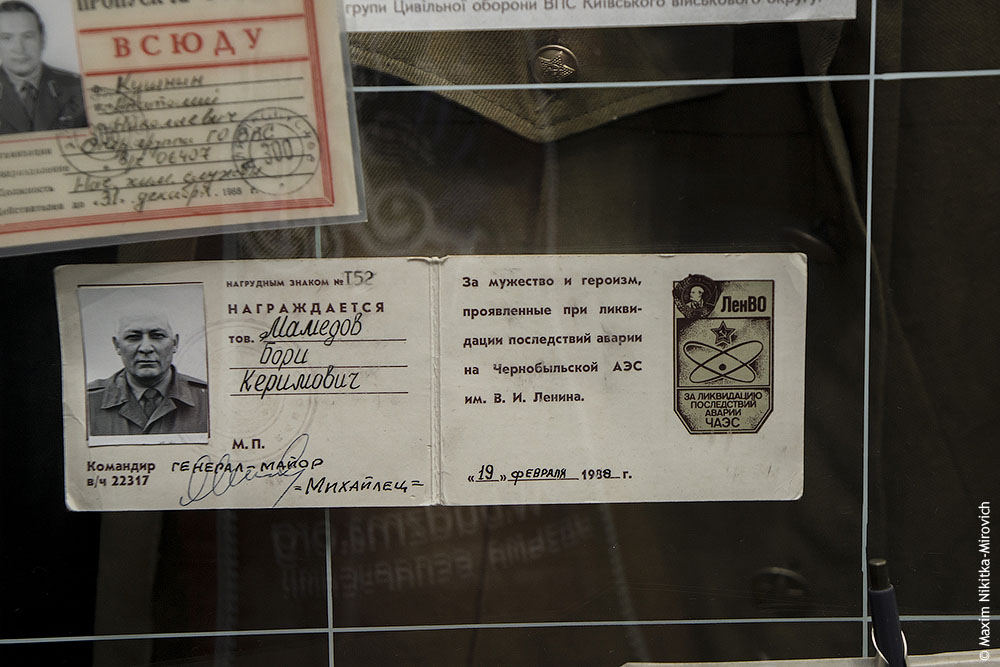 ПРОПУСК №
ВСЮДУ
Кушнин
Анатолий
Николаевич
Опер. группа ГО ВПС
в/ч 06407
300
Должность Нач. хим. службы
Действителен до „31„ декабря 1988 г.
групи Цивільної оборони ВПС Київського військового округу.
НАГРУДНЫМ ЗНАКОМ № Т52
НАГРАЖДАЕТСЯ
тов. Мамедов
Бори
Керимович
М. П.
Командир ГЕНЕРАЛ-МАЙОР
в/ч 22317
=МИХАЙЛЕЦ=
За мужество и героизм,
проявленные при ликви-
дации последствий аварии
на Чернобыльской АЭС
им. В. И. Ленина.
«19» ФЕВРАЛЯ 1988 г.
ЛенВО
ЗА ЛИКВИДАЦИЮ
ПОСЛЕДСТВИЙ
АВАРИИ
ЧАЭС
© Maxim Nikitka-Mirovich